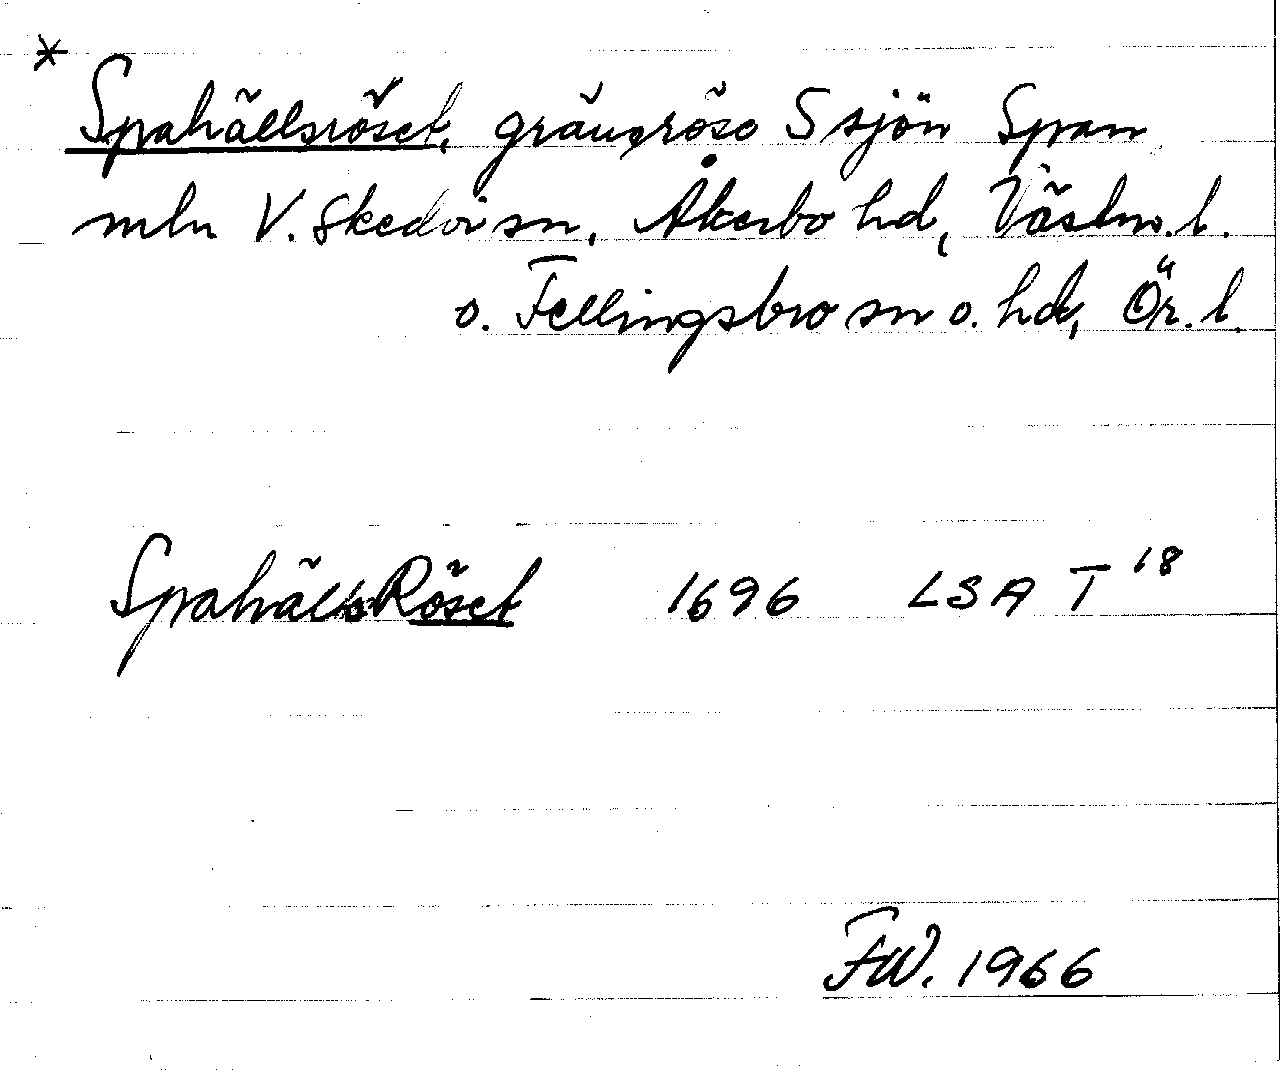 * Spahällsröset, gränsröse S sjön Span
mln V. Skedvi sn, Åkerbo hd, Västm. l.
o. Fellingsbro sn o. hd, Ör. l.
Spahälls Röset 1696 LSA T 18
FW. 1966